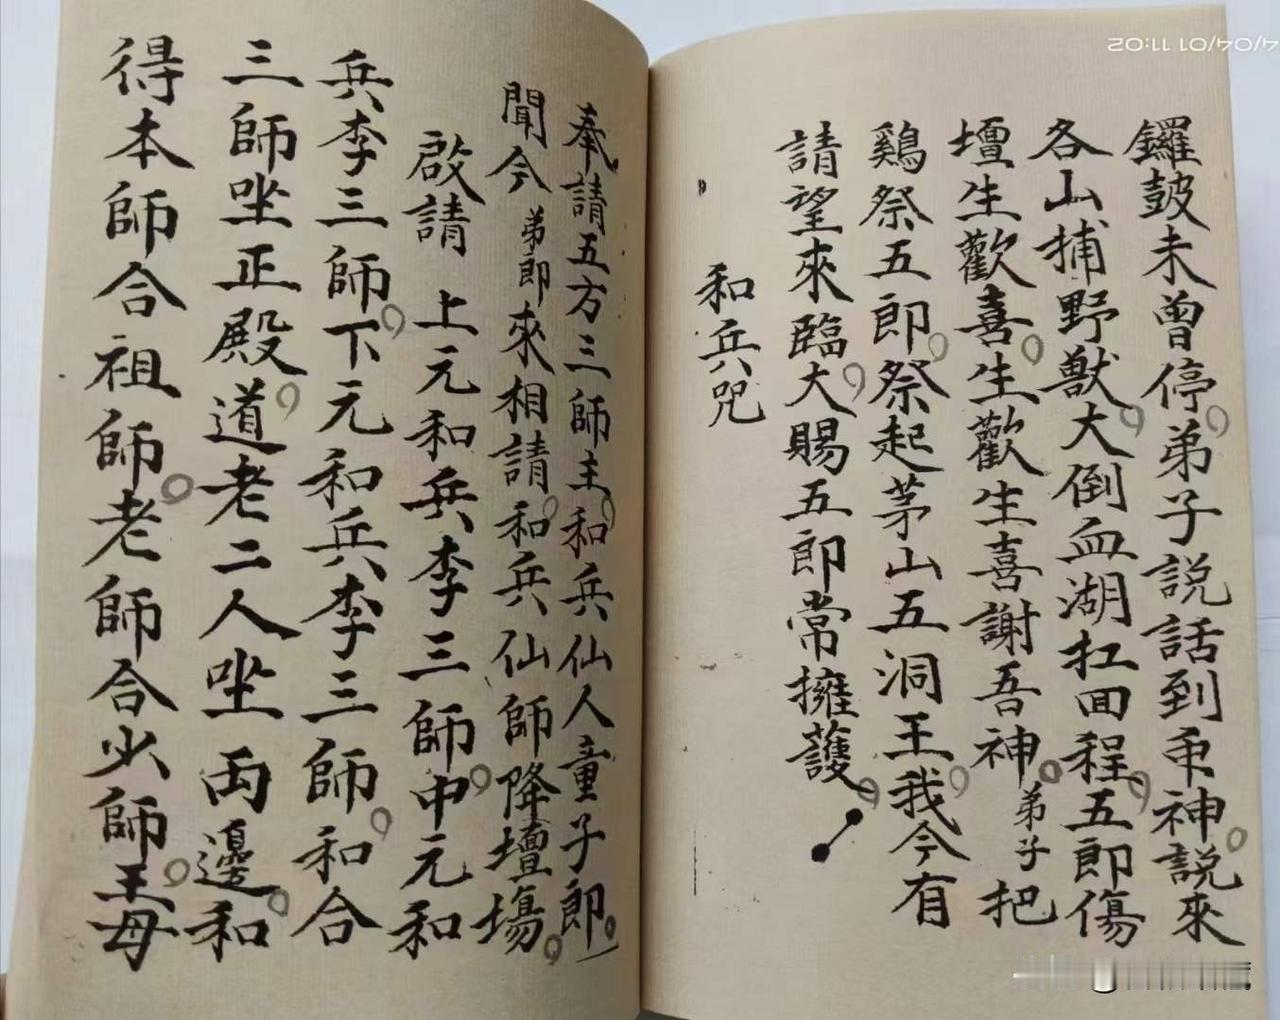 鑼皷未曾停，弟子説話到帀神。説來
各山捕野獸，大倒血湖扛回程，五郎傷
壇生歡喜。生歡生喜謝吾神。弟子把
鷄祭五郎，祭起茅山五洞王，我今有
請望來臨，大賜五郎常擁護，
和兵咒
奉請五方三師主，和兵仙人童子郎。
聞今弟郎來相請，和兵仙師降壇塲，
啟請 上元和兵李三師，中元和
兵李三師，下元和兵李三師，和合
三師坐正殿，道老二人坐両邊。和
得本師合祖師。老師合少師。王母
4/04/01 11:02